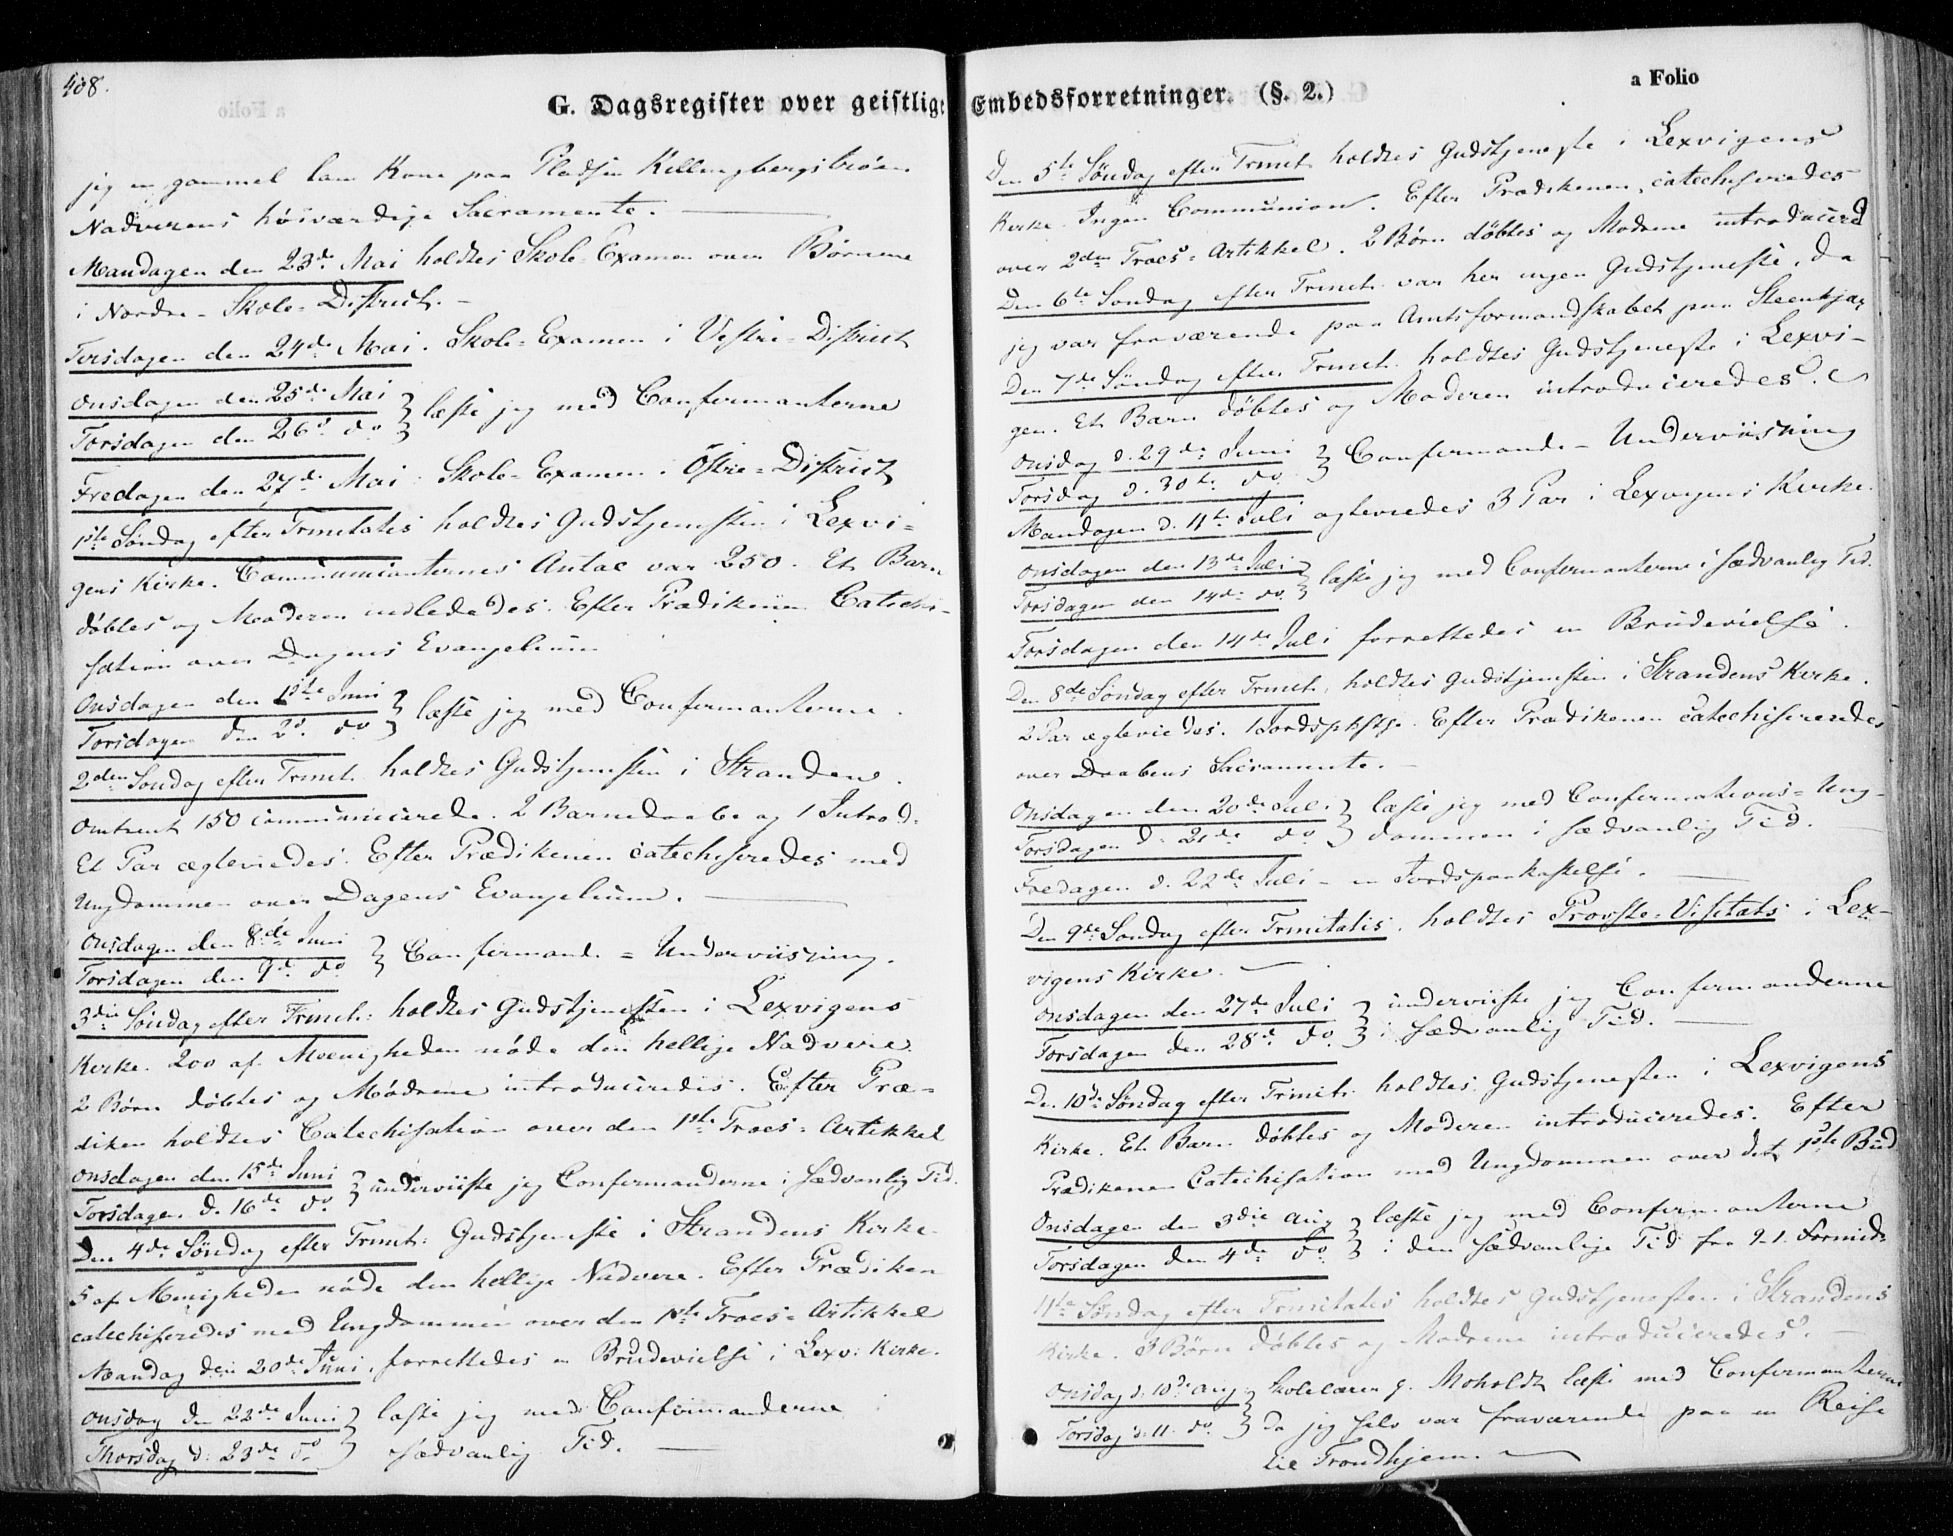 408.
G. Dagsregister over geistlige Embedsforretninger. (§. 2.)
a Folio
jeg en gammel lam Kone paa Pladsen Killingbergsbroen
Nadverens høiværdige Sacramente.
Mandagen den 23de Mai holdtes Skole-Examen over Børnene
i Nordre-Skole-District.
Tirsdagen den 24de Mai. Skole-Examen i Vestre-District
Onsdagen den 25de Mai
Torsdagen den 26d. do
læste jeg med Confirmanterne
Fredagen den 27de Mai. Skole-Examen i Østre-District
1ste Søndag efter Trinitatis holdtes Gudstjenesten i Lexvi-
gens Kirke. Communicanternes Antal var 250. Et Barn
døbtes og Moderen indlededes. Efter Prædikenen Catechi-
sation over Dagens Evangelium
Onsdagen den 1ste Juni
Torsdagen den 2d. do
læste jeg med Confirmanterne.
2den Søndag efter Trinit. holdtes Gudstjenesten i Stranden.
Omtrent 150 communicerede. 2 Barnedaabe og 1 Introd.
Et Par ægteviedes. Efter Prædikenen catechiseredes med
Ungdommen over Dagens Evangelium.
Onsdagen den 8de Juni
Torsdagen den 9d. do
Confirmand-Underviisning.
3die Søndag efter Trinit: holdtes Gudstjenesten i Lexvigens
Kirke. 200 af Meenigheden nøde den hellige Nadvere.
2 Børn døbtes og Mødrene introduceredes. Efter Præ-
diken holdtes Catechisation over den 1ste Troes-Artikkel
Onsdagen den 15de Juni
Torsdagen d. 16de do.
underviiste jeg Confirmanderne i sædvanlig Tid.
Den 4de Søndag efter Trinit: Gudstjeneste i Strandens Kirke.
5 af Menigheden nøde den hellige Nadvere. Efter Prædiken
catechiseredes med Ungdommen over den 1ste Troes-Artikkel
Mandag den 20de Juni, forrettedes en Brudevielse i Lexv: Kirke.
Onsdag den 22de Juni
Thorsdag d. 23de do
læste jeg med Confirmanderne i
sædvanlig Tid.
Den 5te Søndag efter Trinit. holdtes Gudstjeneste i Lexvigens
Kirke. Ingen Communion. Efter Prædikenen, catechiseredes
over 2den Troes-Artikkel. 2 Børn døbtes og Mødrene introducered
Den 6te Søndag efter Trinit. var her ingen Gudstjeneste, da
jeg var fraværende paa Amtsformandskabet paa Steenkjær
Den 7de Søndag efter Trinit. holdtes Gudstjeneste i Lexvi-
gen. Et Barn døbtes og Moderen introduceredes.
Onsdag d. 29de Juni
Torsdag d. 30te do.
Confirmand-Underviisning
Mandagen d. 11te Juli ægteviedes 3 Par i Lexvigens Kirke.
Onsdagen den 13de Juli
Torsdagen den 14de do.
læste jeg med Confirmanterne i sædvanlig Tid.
Torsdagen den 14de Juli forrettedes en Brudevielse.
Den 8de Søndag efter Trinit. holdtes Gudstjenesten i Strandens Kirke.
2 Par ægteviedes. 1 Efter Prædikenen catechiseredes
over Daabens Sacramente.
Onsdagen den 20de Juli
Torsdagen d. 21de do
læste jeg med Confirmations-Ung-
dommen i sædvanlig Tid.
Fredagen d. 22de Juli - en Jordspaakastelse.
Den 9de Søndag efter Trinitatis, holdtes Provste-Visitats i Lex-
vigens Kirke.
Onsdagen den 27de Juli
Torsdagen den 28d. do.
underviiste jeg Confirmanderne
i sædvanlig Tid.
Den 10de Søndag efter Trinit. holdtes Gudstjenesten i Lexvigens
Kirke. Et Barn døbtes og Moderen introduceredes. Efter
Prædikenen Catechisation med Ungdommen over det 1ste Bud
Onsdagen den 3die Aug
Torsdagen den 4de do
læste jeg med Confirmanterne
i den sædvanlige Tid fra 9-1. Formid.
11te Søndag efter Trinitatis holdtes Gudstjenesten i Strandens
Kirke. 3 Børn døbtes og Mødrene introduceredes.
Onsdag d. 10de Aug.
Torsdag d. 11. do.
Skolelærer G. Moholdt læste med Confirmanterne
da jeg selv var fraværende paa en Reise
til Trondhjem.